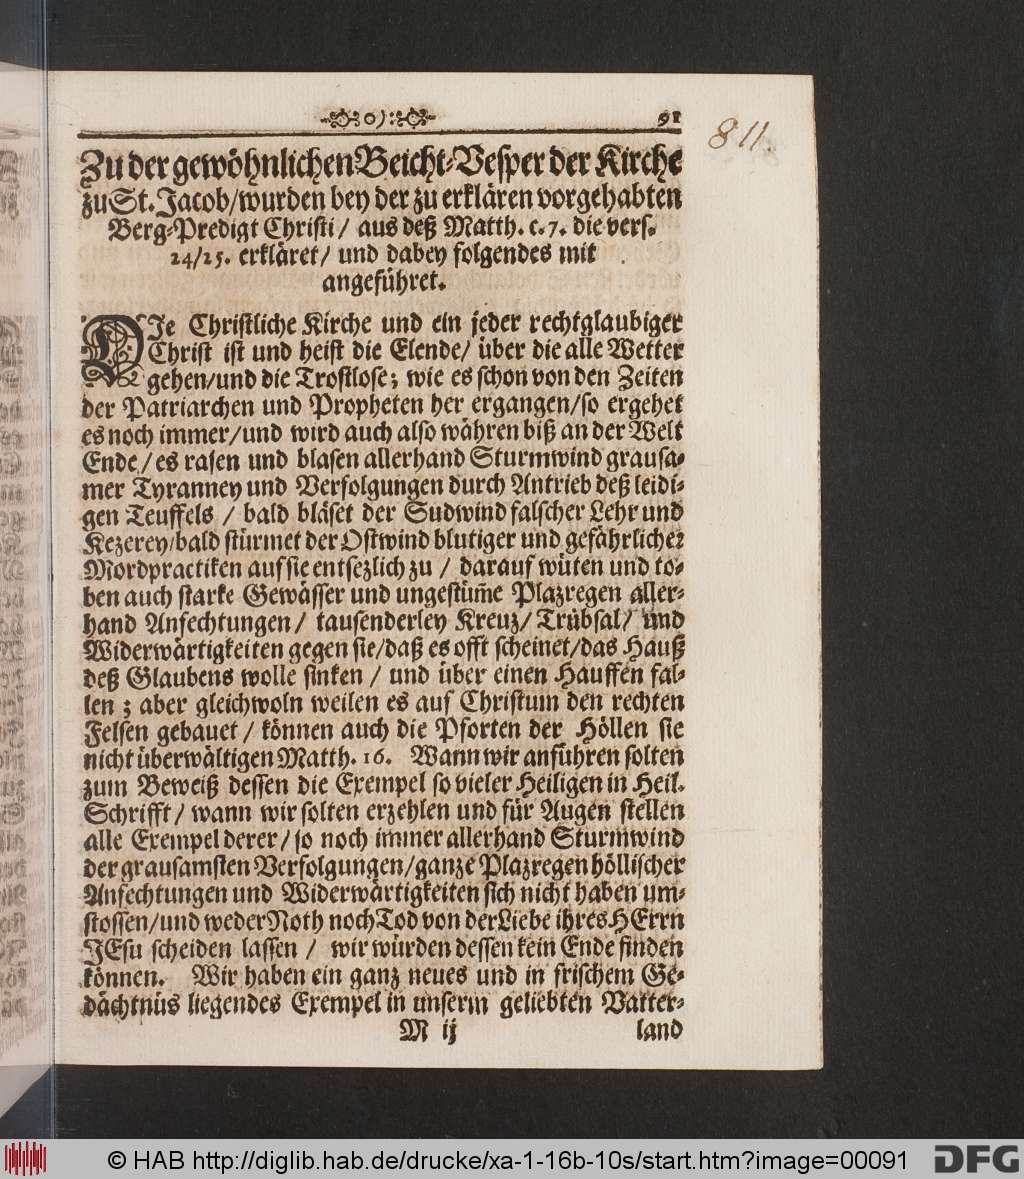 o): 91
811.
Zu der gewöhnlichen Beicht-Vesper der Kirche
zu St. Jacob/wurden bey der zu erklären vorgehabten
Berg-Predigt Christi/ aus deß Matth. c. 7. die vers.
24/25. erkläret/ und dabey folgendes mit
angeführet.
DIe Christliche Kirche und ein jeder rechtglaubiger
Christ ist und heist die Elende/ über die alle Wetter
gehen/und die Trostlose; wie es schon von den Zeiten
der Patriarchen und Propheten her ergangen/so ergehet
es noch immer/und wird auch also währen biß an der Welt
Ende/es rasen und blasen allerhand Sturmwind grausa-
mer Tyranney und Verfolgungen durch Antrieb deß leidi-
gen Teuffels / bald bläset der Sudwind falscher Lehr und
Kezerey/bald stürmet der Ostwind blutiger und gefährlicher
Mordpractiken auf sie entsezlich zu / darauf wüten und to-
ben auch starke Gewässer und ungestüm̄e Plazregen aller-
hand Anfechtungen/ tausenderley Kreuz/ Trübsal/ und
Widerwärtigkeiten gegen sie/daß es offt scheinet/das Hauß
deß Glaubens wolle sinken / und über einen Hauffen fal-
len; aber gleichwoln weilen es auf Christum den rechten
Felsen gebauet / können auch die Pforten der Höllen sie
nicht überwältigen Matth. 16. Wann wir anführen solten
zum Beweiß dessen die Exempel so vieler Heiligen in Heil.
Schrifft/ wann wir solten erzehlen und für Augen stellen
alle Exempel derer/so noch immer allerhand Sturmwind
der grausamsten Verfolgungen/ganze Plazregen höllischer
Anfechtungen und Widerwärtigkeiten sich nicht haben um-
stossen/und weder Noth noch Tod von der Liebe ihres HErrn
JEsu scheiden lassen / wir würden dessen kein Ende finden
können. Wir haben ein ganz neues und in frischem Ge-
dächtnüs liegendes Exempel in unserm geliebten Vatter-
M ij land
© HAB http://diglib.hab.de/drucke/xa-1-16b-10s/start.htm?image=00091 DFG